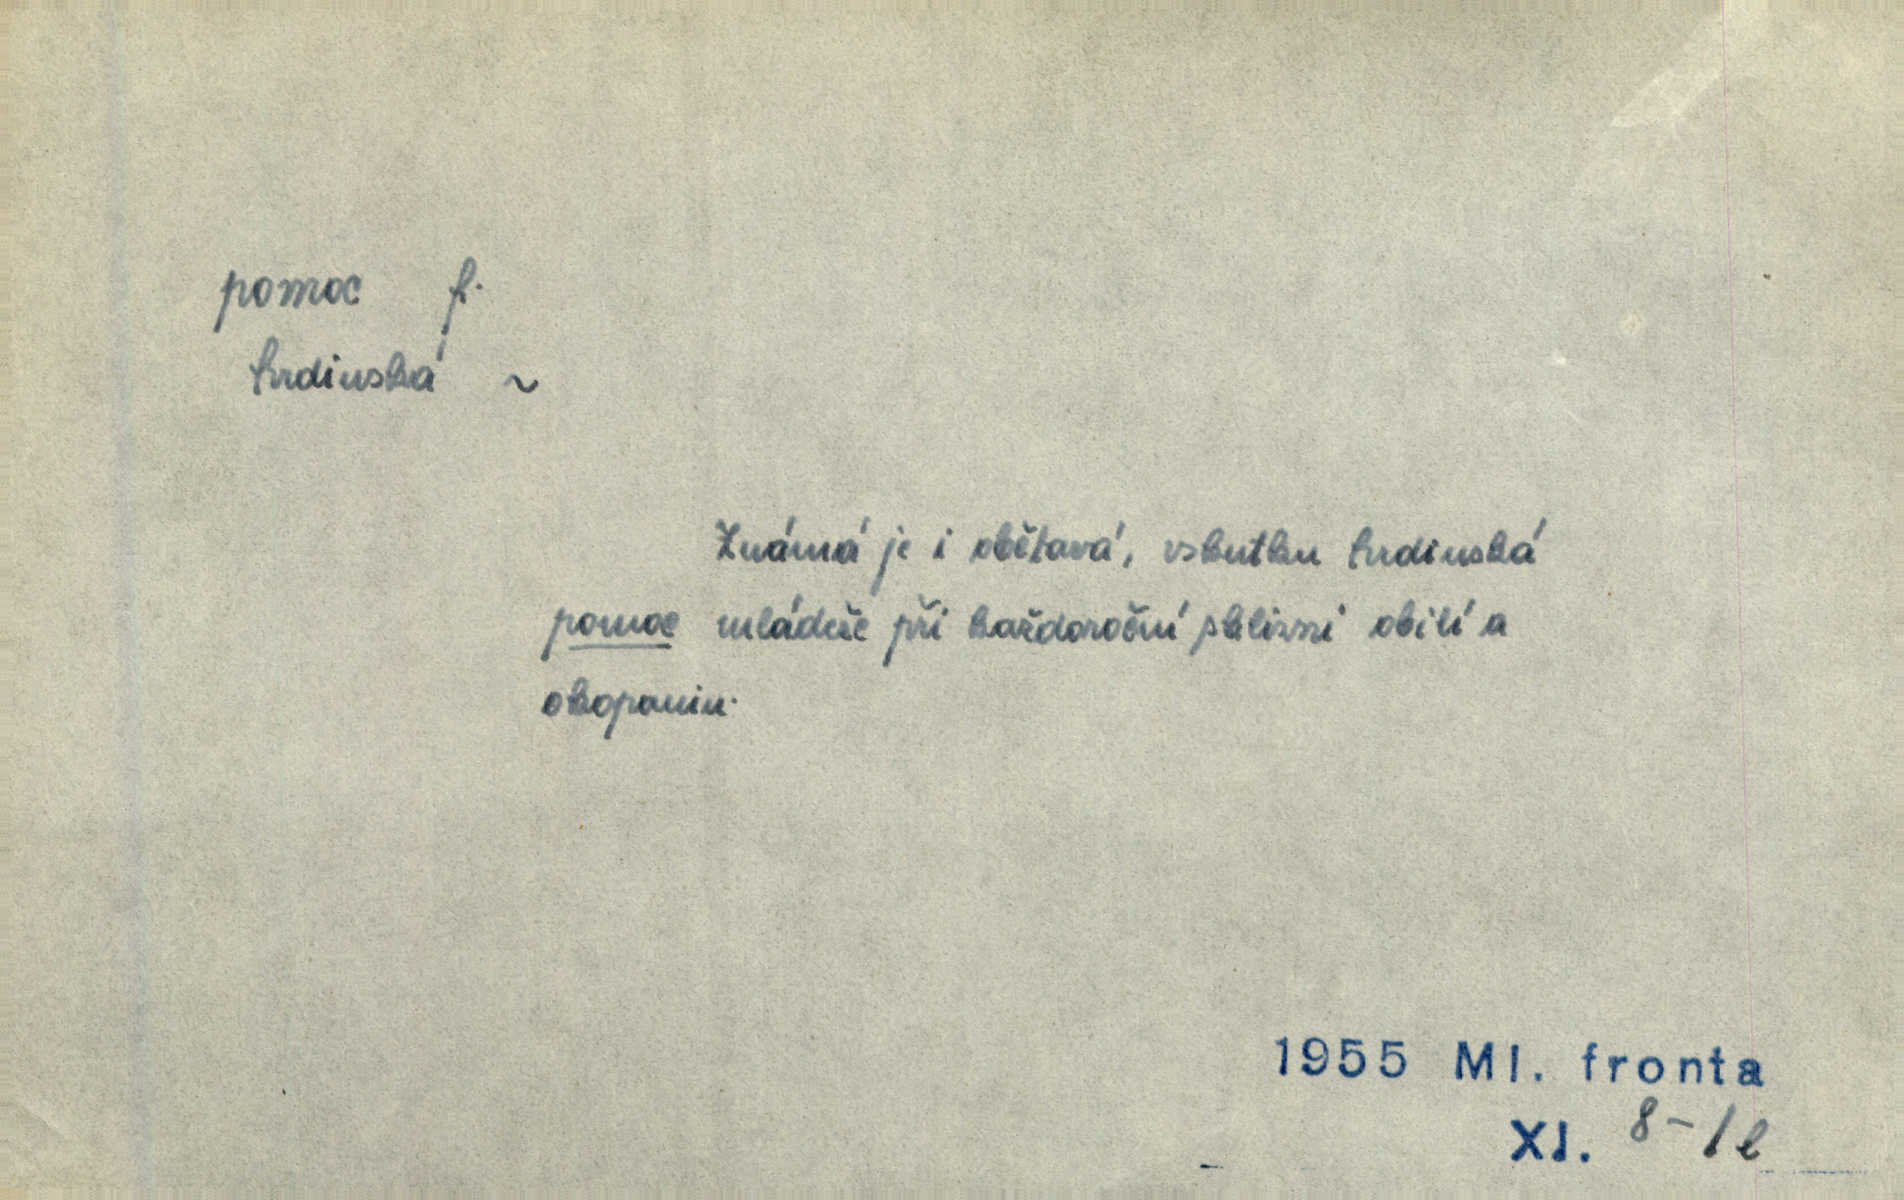 pomoc f.
hrdinská ~
Známá je i obětavá, vskutku hrdinská
pomoc mládeže při každoroční sklizni obilí a
okopanin.
1955 Ml. fronta
XI. 8-1b